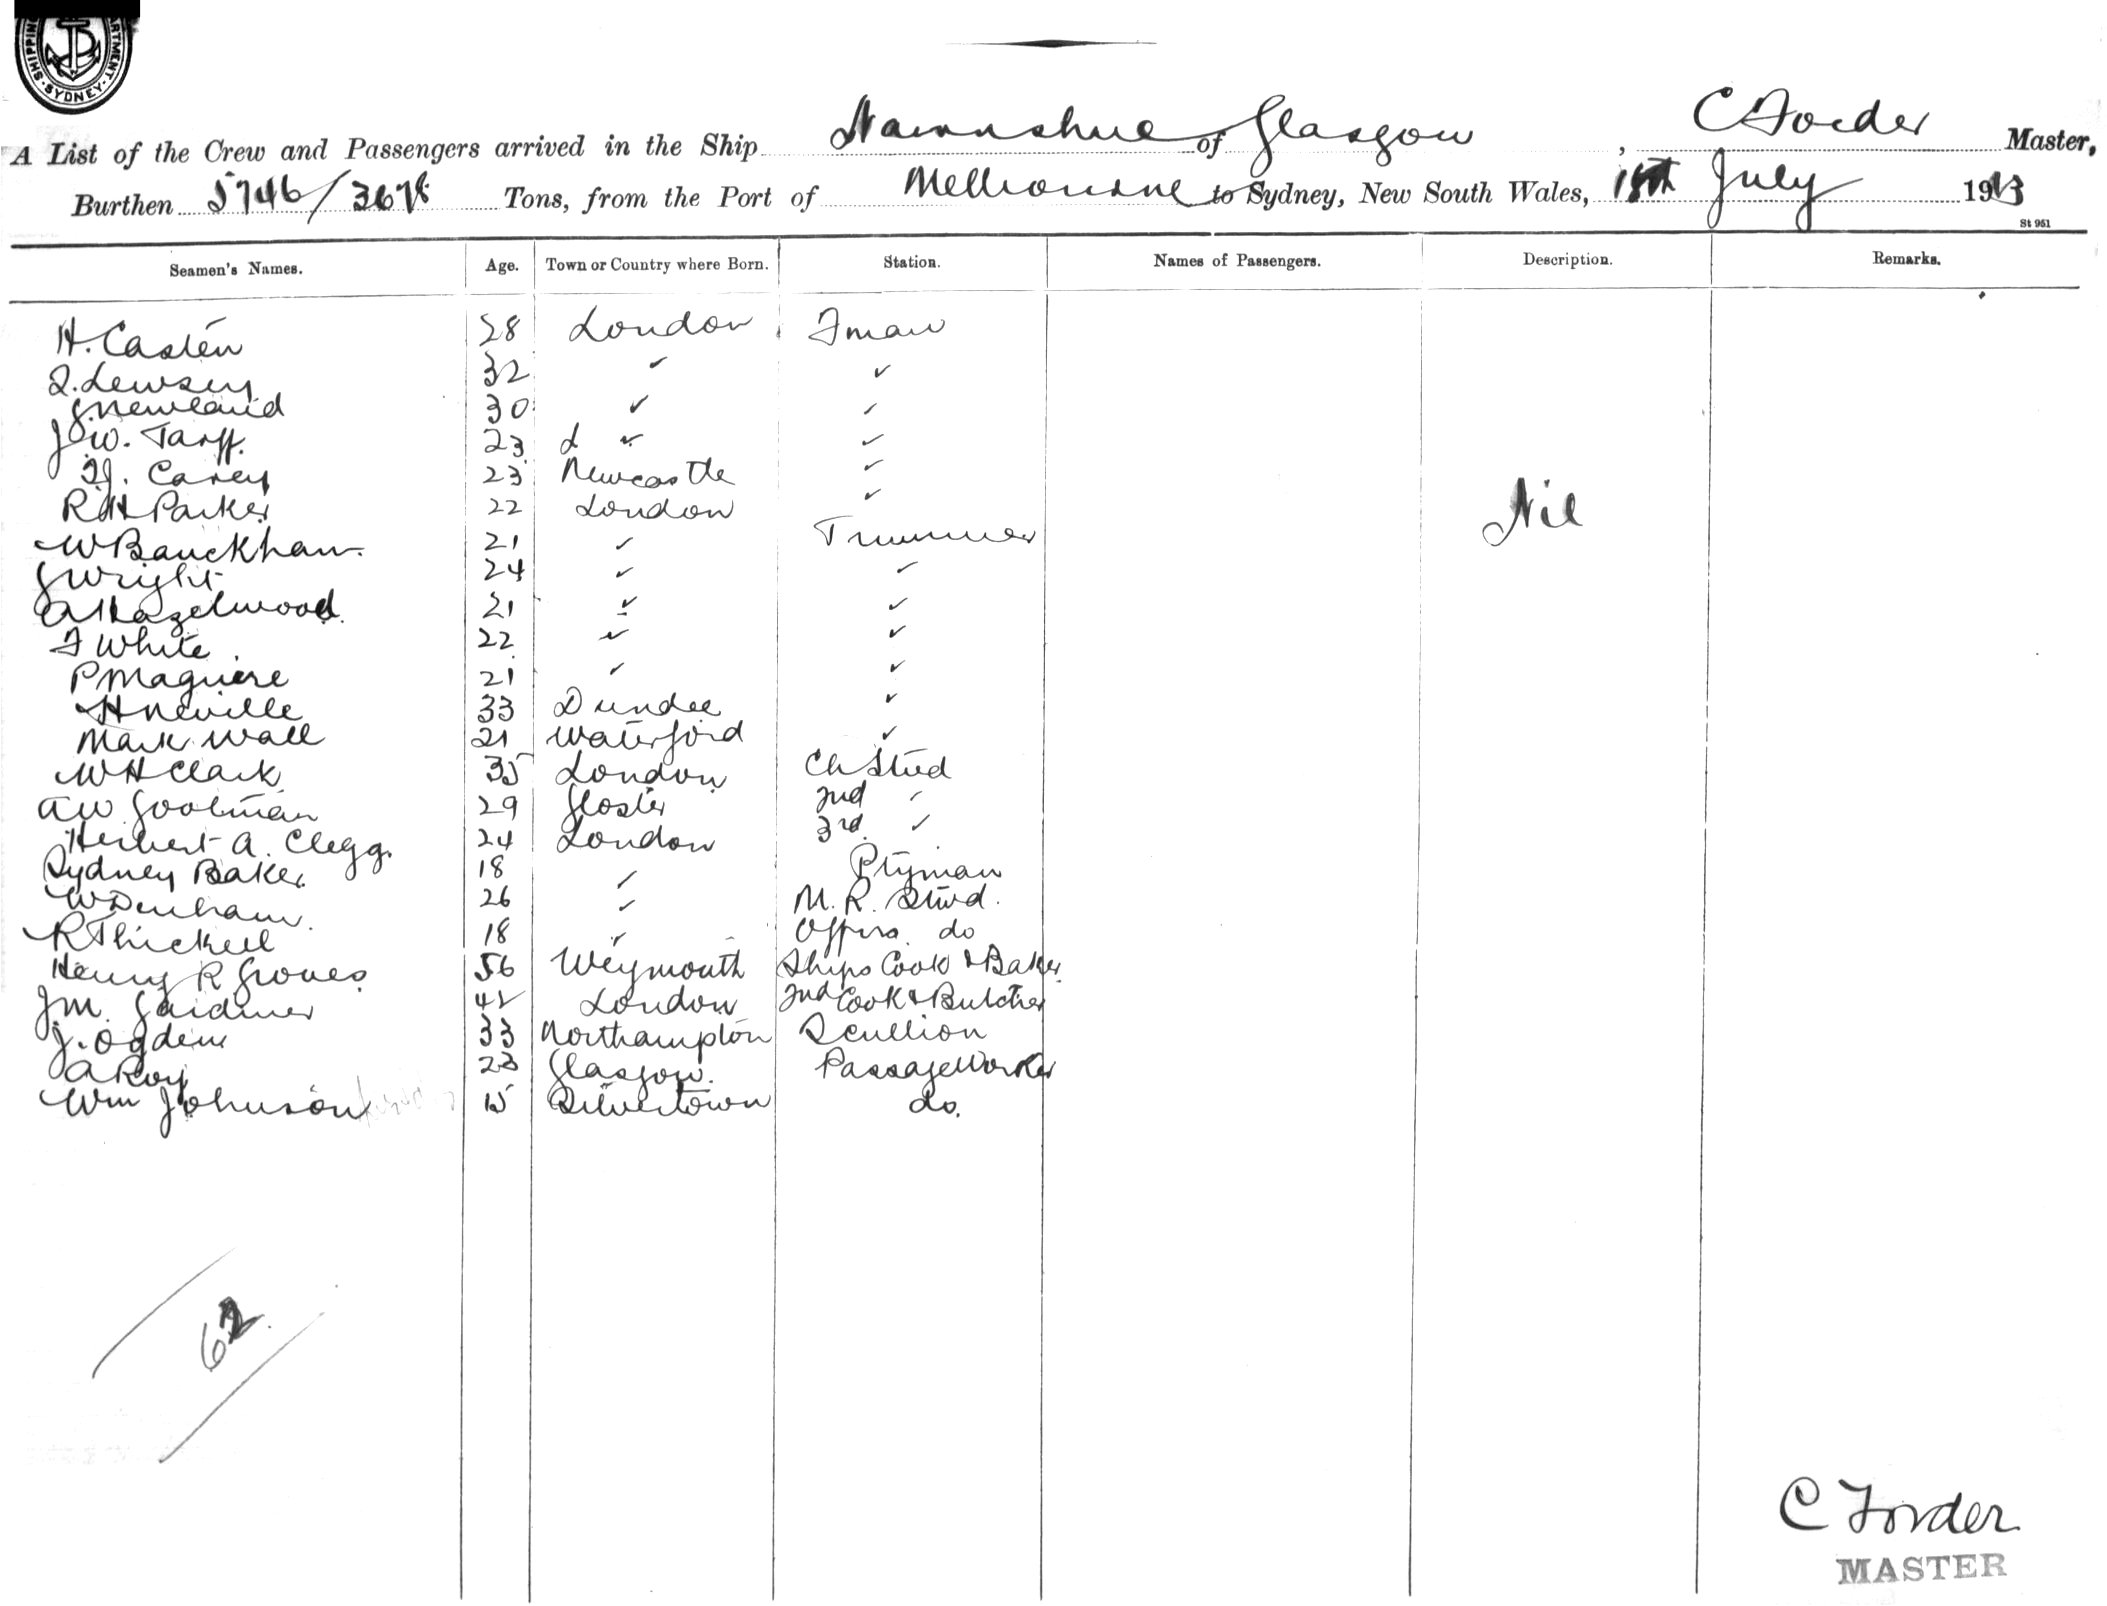 SHIPPING DEPARTMENT SYDNEY
A List of the Crew and Passengers arrived in the Ship of Glasgow, C Forder Master,
Burthen 5746/3678 Tons, from the Port of Melbourne to Sydney, New South Wales, 15th July 1913
St 951
Seamen's Names. Age. Town or Country where Born. Station. Names of Passengers. Description. Remarks.
H. Casten 28 London Fman
32 ✓ ✓
J Newland 30 ✓ ✓
J. W. Tarff. 23 ✓ ✓
Carey 23 Newcastle ✓
R H Parker 22 London ✓
Nil
W Bauckham 21 ✓ Trimmer
J Wright 24 ✓ ✓
A Hazelwood. 21 ✓ ✓
F White 22 ✓ ✓
P Maguire 21 ✓ ✓
H Neville 33 Dundee ✓
Mark Wall 21 Waterford ✓
W H Clark 35 London Ch Stwd
A W 29 Gloster 2nd ✓
Herbert A. Clegg. 24 London 3rd ✓
Sydney Baker. 18 Ptyman
W Denham. 26 ✓ M. R. Stwd.
R Thickell 18 ✓ Offrs. do
Henry R Groves 56 Weymouth Ships Cook & Baker
J. M. Gardiner 42 London 2nd Cook & Butcher
J. Ogden 33 Northampton Scullion
A Roy 23 Glasgow. Passage Worker
Wm Johnson 15 Silvertown do.
62
C Forder
MASTER